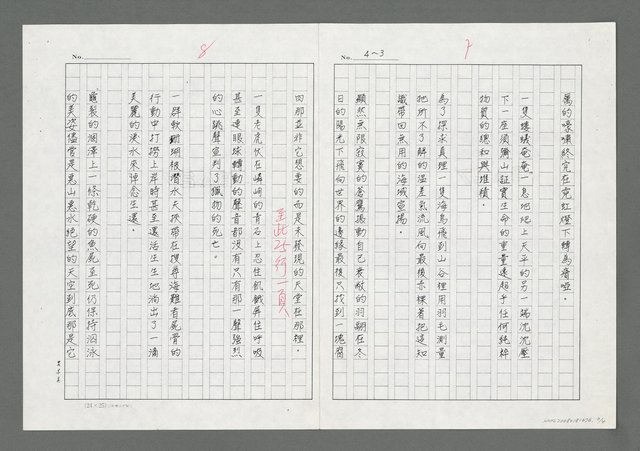 No. 4～3
7
萬的嚎嘯終究在霓虹燈下轉為瘖啞。
一隻螻蟻奄奄一息地爬上天平的另一端沈沈壓
下一座須彌山証實生命的重量遠超乎任何純粹
物質的總和與堆積。
為了探求真理一隻海鳥飛到山谷裡用羽毛測量
祂所不了解的溫差氣流風向最後赤裸著把這知
識帶回無用的海域宣揚。
顯然無限寂寞的蒼鷺振動自己衰敝的羽翮在冬
日的陽光下飛向世界的邊緣最後只找到一塊腐
No.
8
肉那並非它想要的而是未發現的天堂在那裡。
至此25行一頁
一隻老虎伏在嶙峋的青石上忍住飢餓屏住呼吸
甚至連眼球轉動的聲音都沒有只有那一聲強烈
的心跳聲宣判了獵物的死亡。
一群軟珊瑚被潛水夫挾帶在搜尋海難者屍骨的
行動中打撈上岸時甚至還活生生地淌出了一滴
美麗的淚水來悼念生還。
龜裂的涸澤上一條乾硬的魚屍至死仍保持泅泳
的美姿儘管是窮山惡水絕望的天空到底那是它
(24×25)